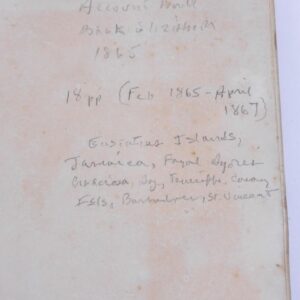 Account Book
Bark Elizabeth
1865
18 pp (Feb 1865 - April
1867)
Islands,
Jamaica, Fayal Azores
Teneriffe, Canary
Isls, Barbados, St. Vincent